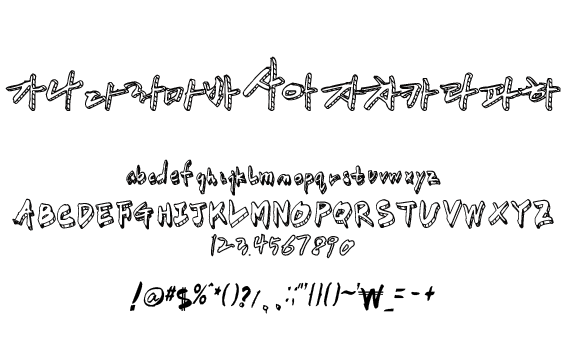 가나다라마바사아자차카타파하
abcdefghijklmnopqrstuvwxyz
ABCDEFGHIJKLMNOPQRSTUVWXYZ
1234567890
!@#$%^*()?/,.:;"'{}()~'₩_=-+